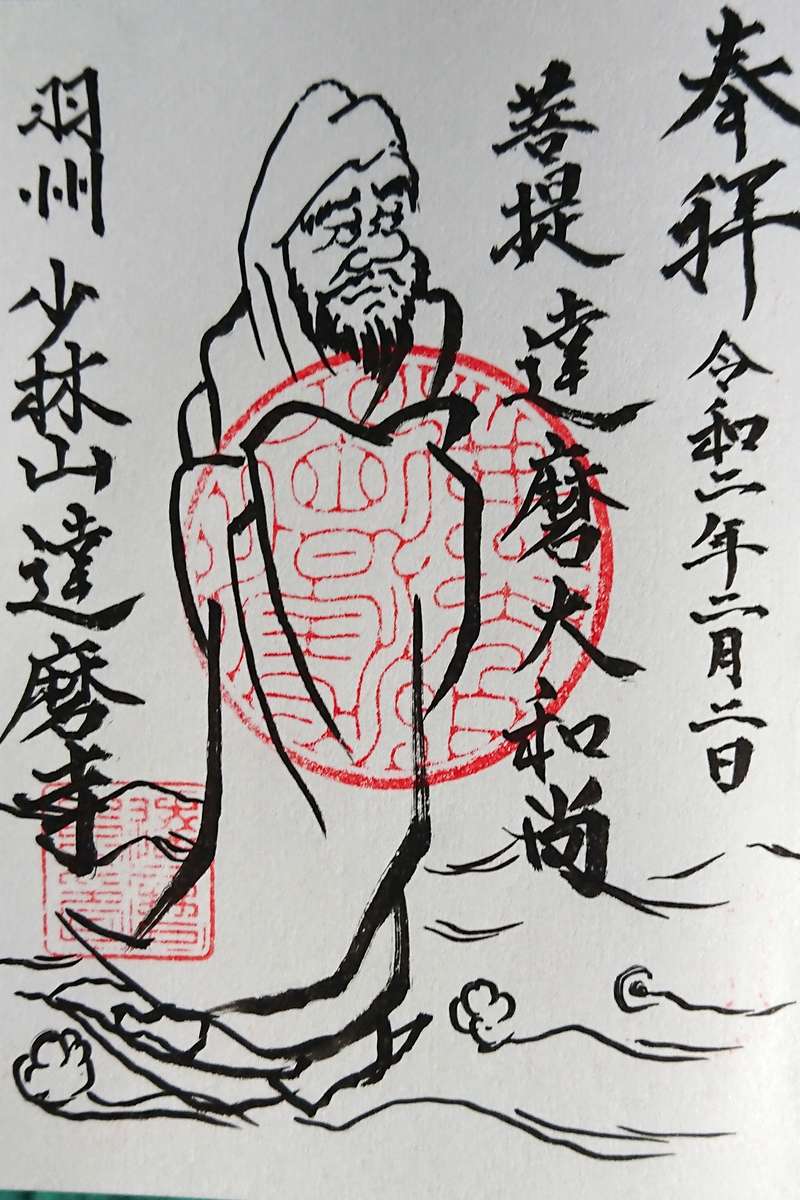 奉拝
令和二年二月二日
菩提達磨大和尚
羽州 少林山達磨寺